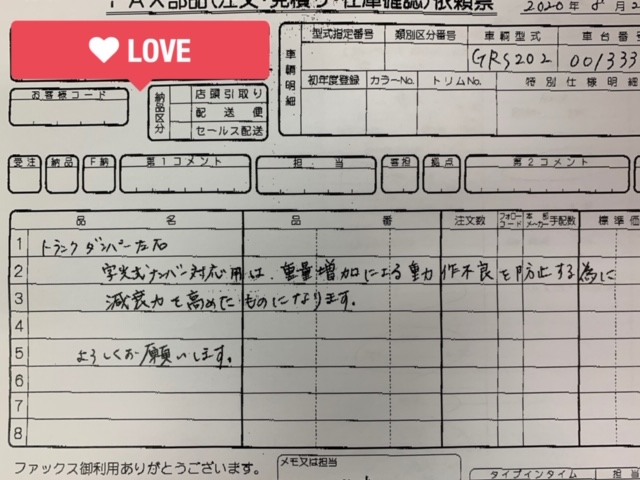 FAX部品(注文・見積り・在庫確認)依頼票
2020年8月2
LOVE
車輌明細
型式指定番号 類別区分番号 車輌型式 車台番号
GRS202 001333
初年度登録 カラーNo. トリムNo. 特別仕様明細
お客様コード
納品区分
店頭引取り
配送便
セールス配送
受注 納品 F納 第1コメント 担当 客担 拠点 第2コメント
品名 品番 注文数 フォローコード 本部メーカー手配数 標準価
1 トランクダンパー左右
2 字光式ナンバー対応用は、重量増加による動作不良を防止する為に
3 減衰力を高めたものになります。
4
5 よろしくお願いします。
6
7
8
ファックス御利用ありがとうございます。
メモ又は担当
タイプインタイム 担当